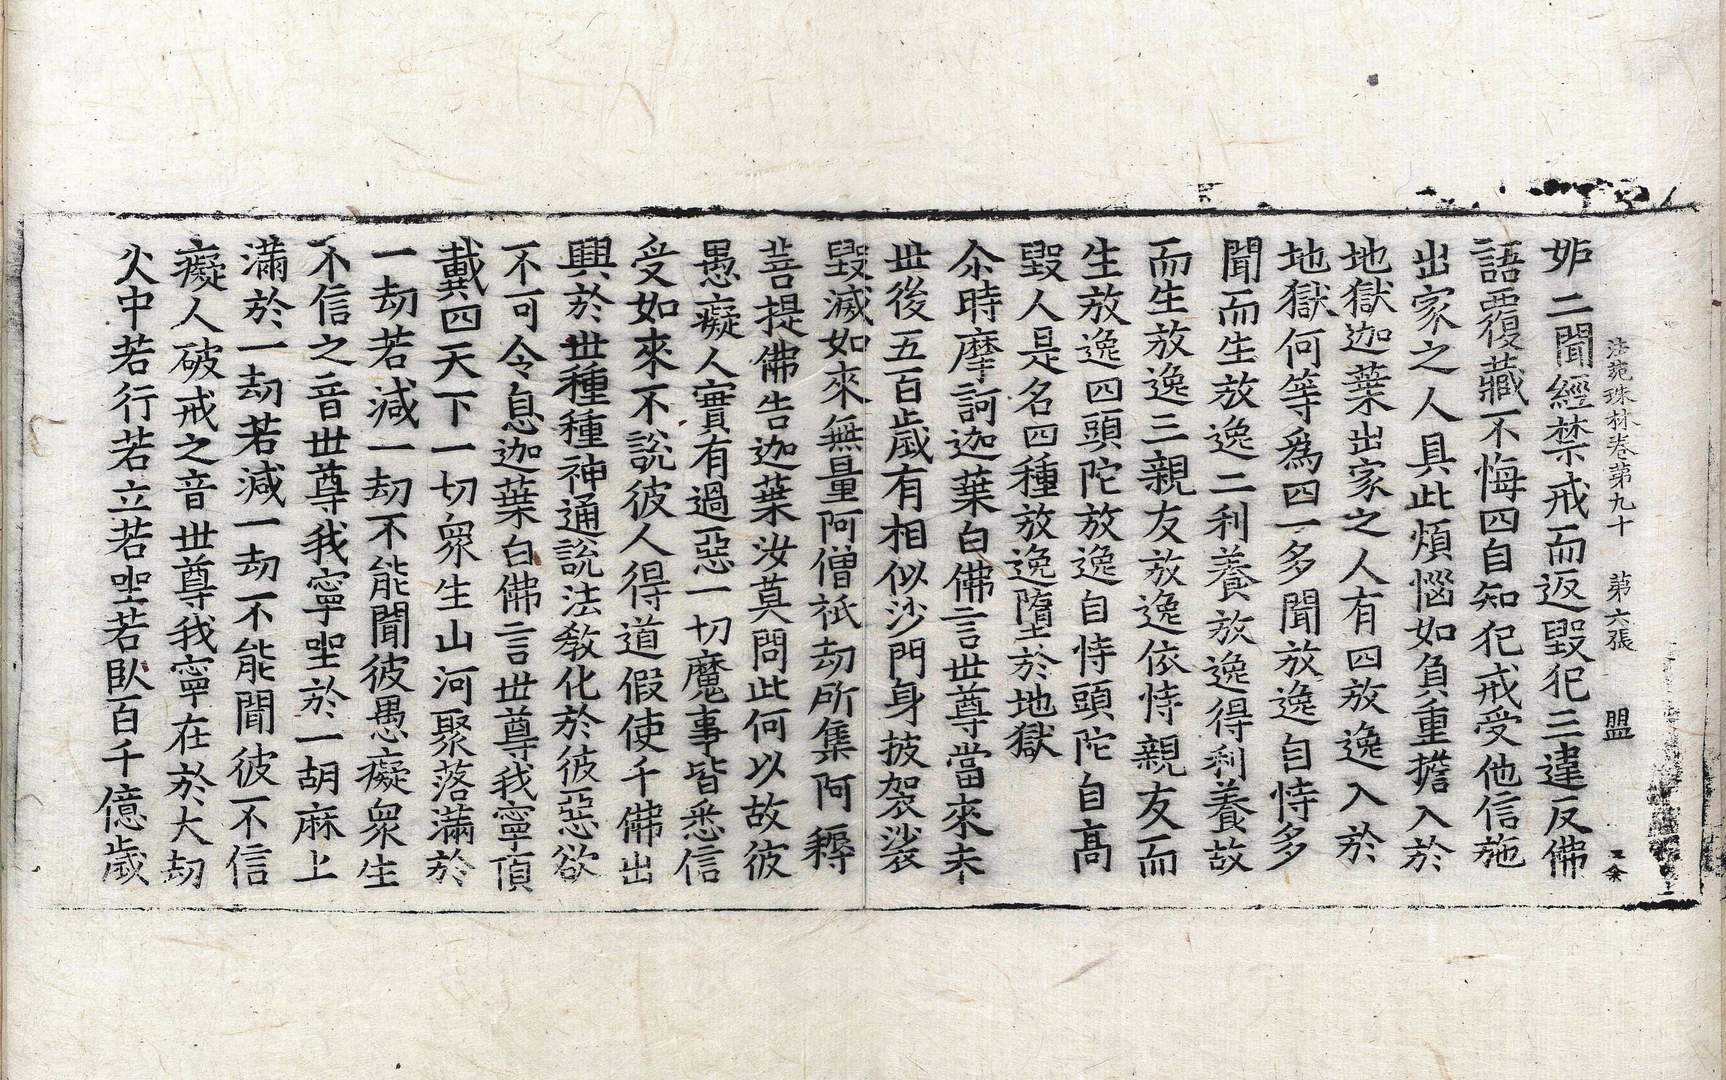 法苑珠林卷第九十　第六張　盟
妬二聞經禁戒而返毀犯三違反佛
語覆藏不悔四自知犯戒受他信施
出家之人具此煩惱如負重擔入於
地獄迦葉出家之人有四放逸入於
地獄何等爲四一多聞放逸自恃多
聞而生放逸二利養放逸得利養故
而生放逸三親友放逸依恃親友而
生放逸四頭陀放逸自恃頭陀自高
毀人是名四種放逸墮於地獄
尒時摩訶迦葉白佛言世尊當來末
世後五百歲有相似沙門身披袈裟
毀滅如來無量阿僧祇劫所集阿耨
菩提佛告迦葉汝莫問此何以故彼
愚癡人實有過惡一切魔事皆悉信
受如來不說彼人得道假使千佛出
興於世種種神通說法敎化於彼惡欲
不可令息迦葉白佛言世尊我寧頂
戴四天下一切衆生山河聚落滿於
一劫若減一劫不能聞彼愚癡衆生
不信之音世尊我寧坐於一胡麻上
滿於一劫若減一劫不能聞彼不信
癡人破戒之音世尊我寧在於大劫
火中若行若立若坐若臥百千億歲